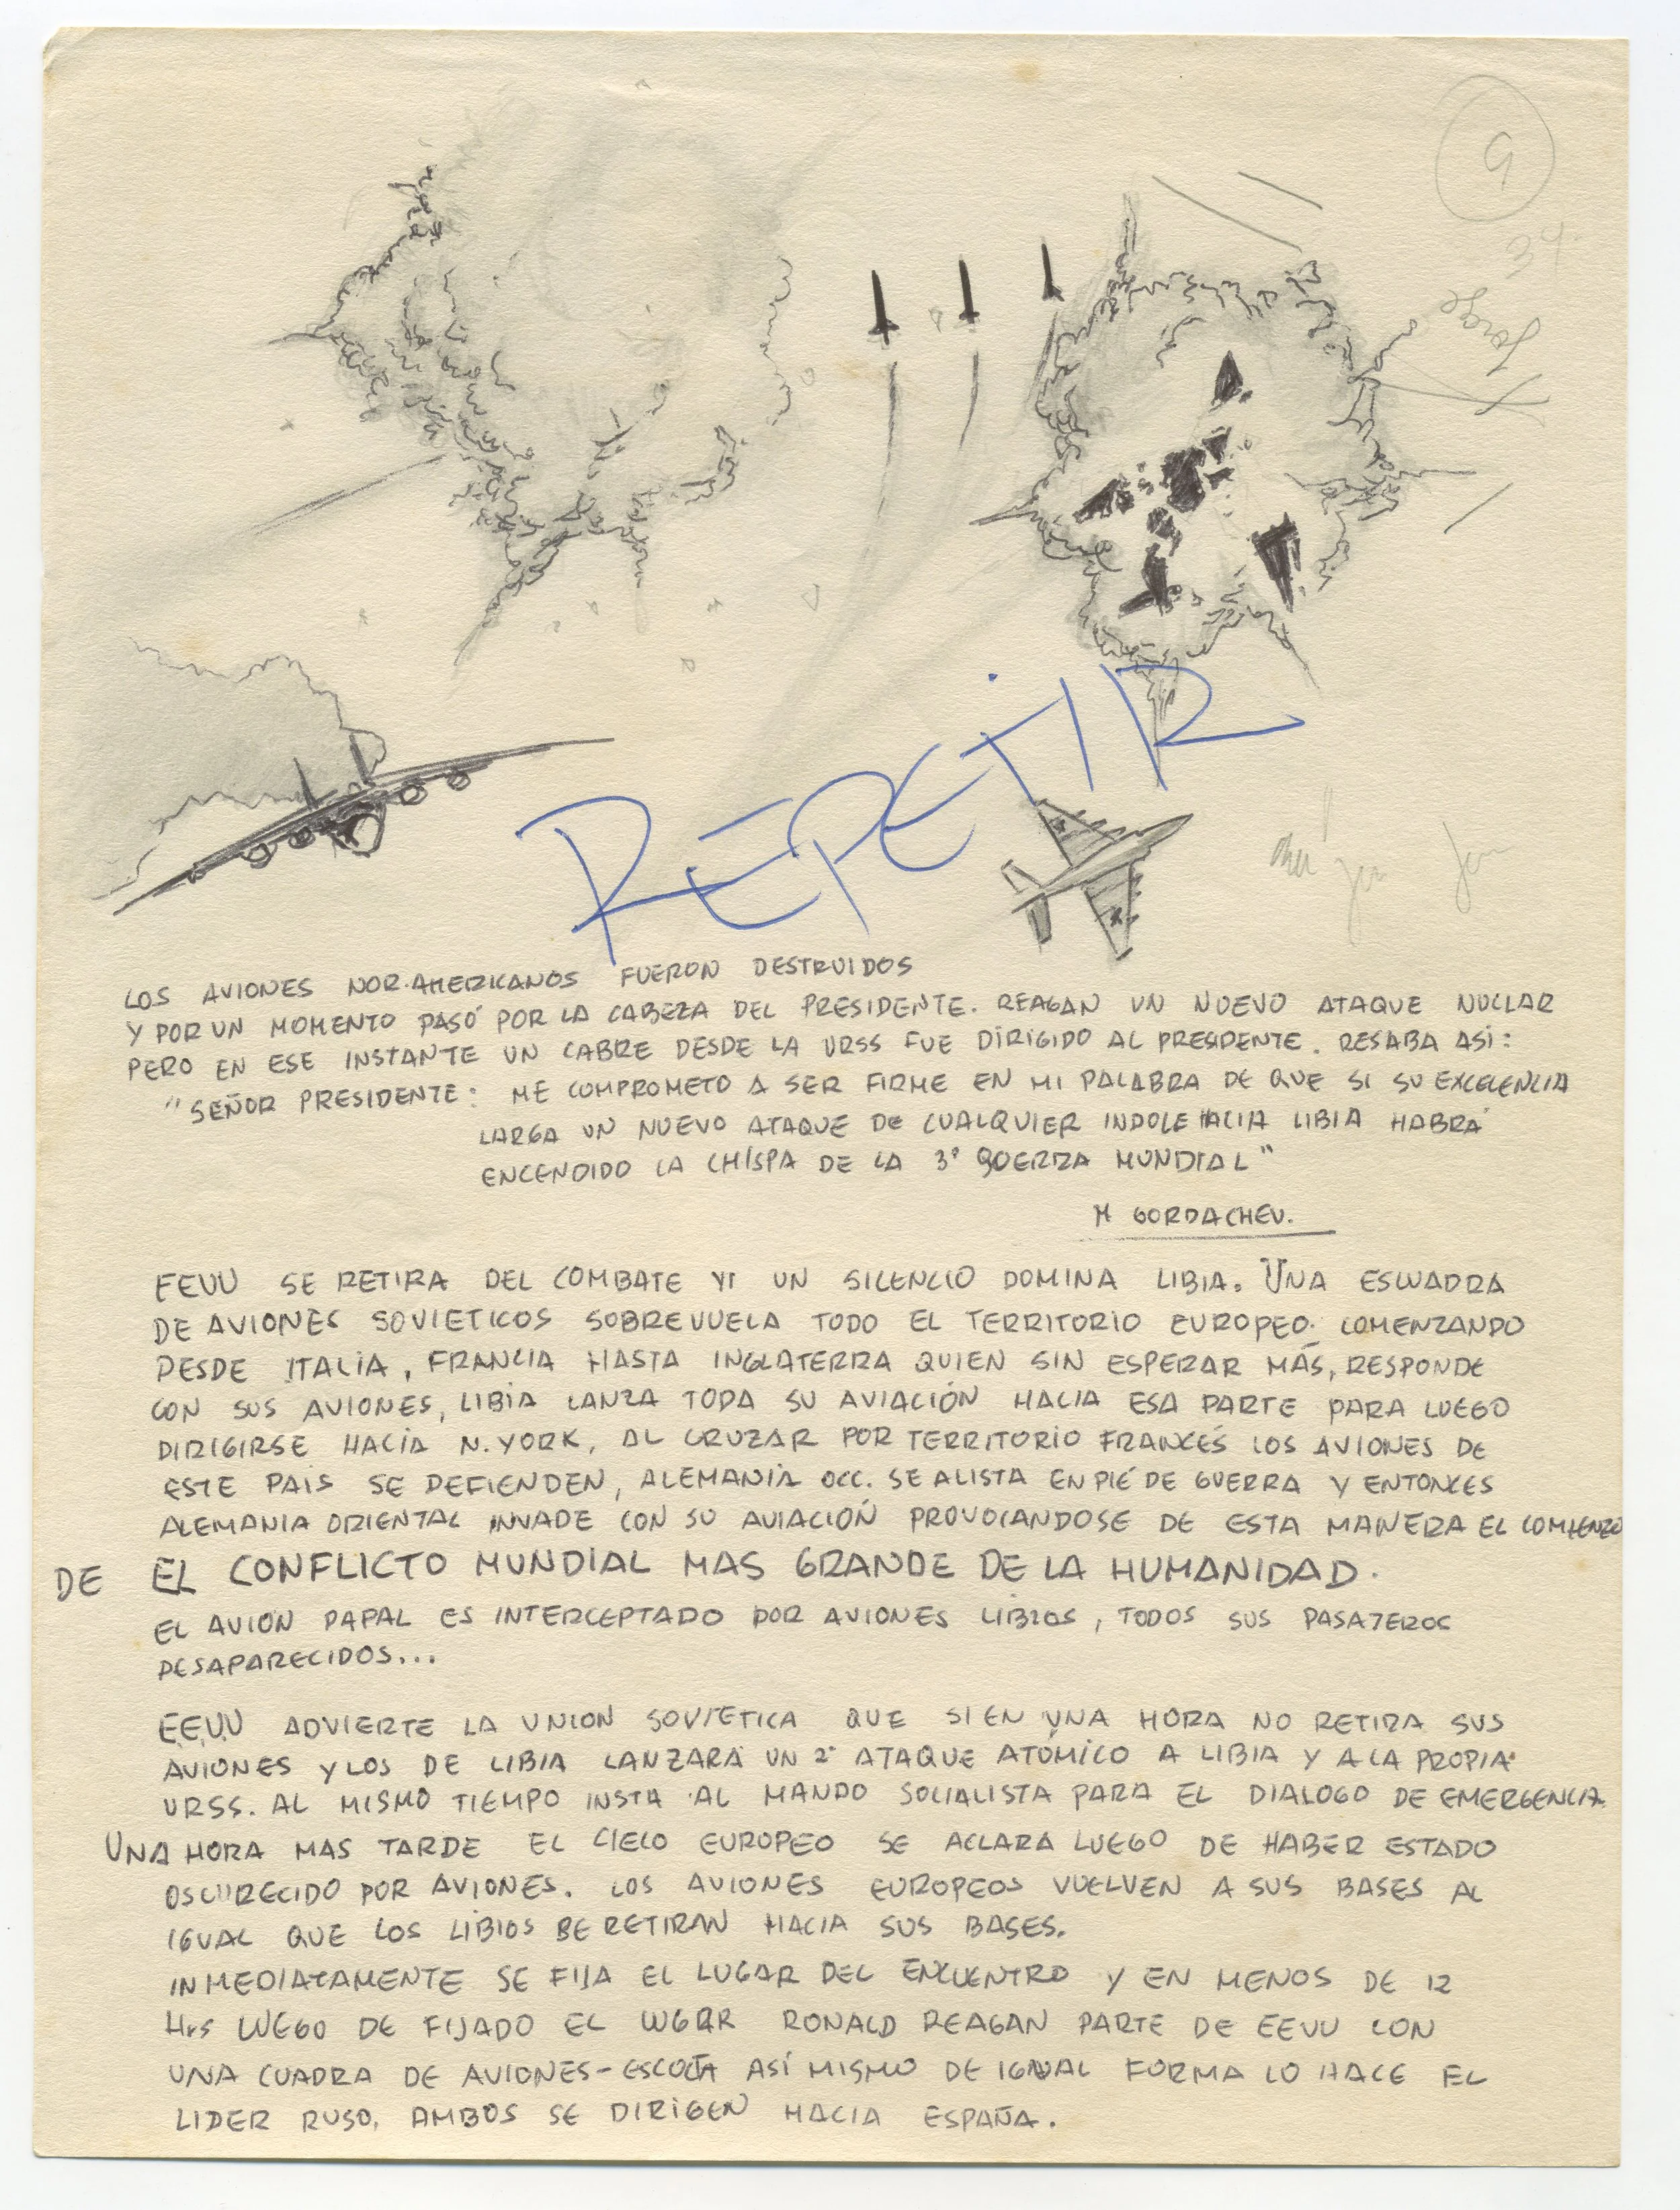 9
34
Jorge
REPETIR
LOS AVIONES NOR-AMERICANOS FUERON DESTRUIDOS
Y POR UN MOMENTO PASÓ POR LA CABEZA DEL PRESIDENTE. REAGAN UN NUEVO ATAQUE NUCLAR
PERO EN ESE INSTANTE UN CABRE DESDE LA URSS FUE DIRIGIDO AL PRESIDENTE. RESABA ASI:
"SEÑOR PRESIDENTE: ME COMPROMETO A SER FIRME EN MI PALABRA DE QUE SI SU EXCELENCIA
LARGA UN NUEVO ATAQUE DE CUALQUIER INDOLE HACIA LIBIA HABRÁ
ENCENDIDO LA CHISPA DE LA 3° GUERRA MUNDIAL"
M GORBACHEV.
EEUU SE RETIRA DEL COMBATE Y UN SILENCIO DOMINA LIBIA. UNA ESCUADRA
DE AVIONES SOVIETICOS SOBREVUELA TODO EL TERRITORIO EUROPEO. COMENZANDO
DESDE ITALIA, FRANCIA HASTA INGLATERRA QUIEN SIN ESPERAR MÁS, RESPONDE
CON SUS AVIONES, LIBIA LANZA TODA SU AVIACIÓN HACIA ESA PARTE PARA LUEGO
DIRIGIRSE HACIA N. YORK, AL CRUZAR POR TERRITORIO FRANCÉS LOS AVIONES DE
ESTE PAIS SE DEFIENDEN, ALEMANIA OCC. SE ALISTA EN PIÉ DE GUERRA Y ENTONCES
ALEMANIA ORIENTAL INVADE CON SU AVIACIÓN PROVOCANDOSE DE ESTA MANERA EL COMIENZO
DE EL CONFLICTO MUNDIAL MAS GRANDE DE LA HUMANIDAD.
EL AVIÓN PAPAL ES INTERCEPTADO POR AVIONES LIBIOS, TODOS SUS PASAJEROS
DESAPARECIDOS...
EEUU ADVIERTE LA UNION SOVIETICA QUE SI EN UNA HORA NO RETIRA SUS
AVIONES Y LOS DE LIBIA LANZARÁ UN 2° ATAQUE ATÓMICO A LIBIA Y A LA PROPIA
URSS. AL MISMO TIEMPO INSTA AL MANDO SOCIALISTA PARA EL DIALOGO DE EMERGENCIA.
UNA HORA MAS TARDE EL CIELO EUROPEO SE ACLARA LUEGO DE HABER ESTADO
OSCURECIDO POR AVIONES. LOS AVIONES EUROPEOS VUELVEN A SUS BASES AL
IGUAL QUE LOS LIBIOS SE RETIRAN HACIA SUS BASES.
INMEDIATAMENTE SE FIJA EL LUGAR DEL ENCUENTRO Y EN MENOS DE 12
Hrs LUEGO DE FIJADO EL LUGAR RONALD REAGAN PARTE DE EEUU CON
UNA CUADRA DE AVIONES-ESCOLTA ASÍ MISMO DE IGUAL FORMA LO HACE EL
LIDER RUSO. AMBOS SE DIRIGEN HACIA ESPAÑA.